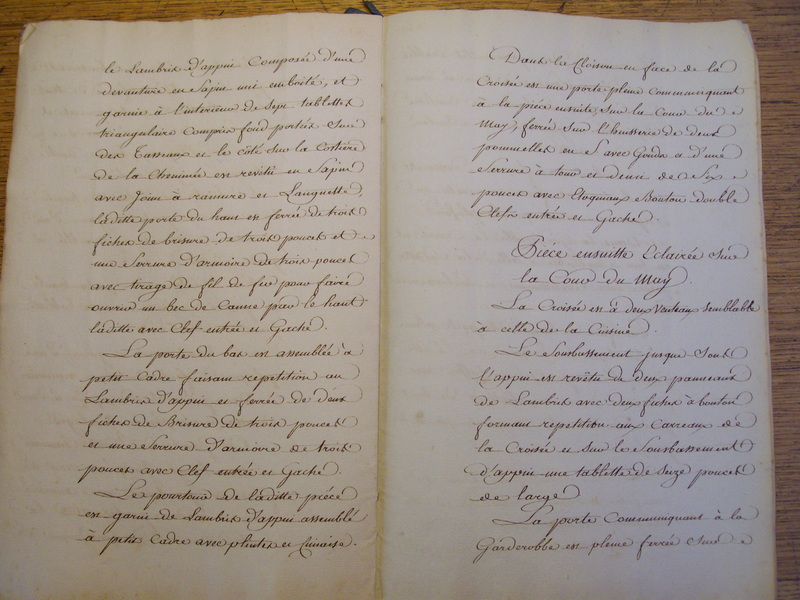 le Lambris d'appui Composée d'une
devanture en Sapin uni emboité, et
garnie à l'interieur de Sept tablettes
triangulaire Compris fond portées Sur
des Tasseaux et le côté sur la Costiere
de la Cheminée est revêtu en Sapin
avec Joint à rainure et Languette,
laditte porte du haut est ferrée de trois
fiches de brisure de trois pouces et
une Serrure d'armoire de trois pouces
avec tirage de fil de fer pour faire
ouvrir un bec de Canne par le haut
laditte avec Clef entrée et Gache.
La porte du bas est assemblée à
petit Cadre faisant repetition au
Lambris d'appui et ferrée de deux
fiches de Brisure de trois pouces
et une Serrure d'armoire de trois
pouces avec Clef entrée et Gache.
Le pourtour de laditte piéce
est garni de Lambris d'appui assemblé
à petit Cadre avec plintes et Cimaise.
Dans la Cloison en face de la
Croisée est une porte pleine communiquant
à la piéce ensuite, sur la Cour du
May, ferrée sur l'huisserie de deux
pommelles en S avec Gonds et d'une
Serrure à tour et demi de Six
pouces avec Bouton double
Clefs entrée et Gache.
Piéce ensuitte Eclairée sur
la Cour du May.
La Croisée est à deux Venteaux semblable
à celle de la Cuisine.
Le Soubassement jusque sous
l'appui est revêtu de deux panneaux
de Lambris avec deux fiches à bouton
formant repetition aux Carreaux de
la Croisée et sur le Soubassement
d'appui une tablette de Suze pouces
de large
La porte Communiquant à la
Garderobbe est pleine ferrée Sur